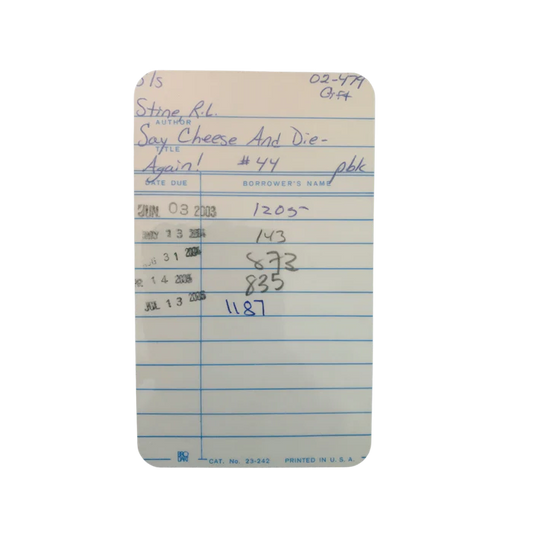 S/s 02-479
Gift
Stine, R.L.
AUTHOR
Say Cheese And Die-
TITLE
Again! #44 pbk
DATE DUE BORROWER'S NAME
JUN. 03 2003 1205
MAY 13 2004 143
31 873
14 835
JUL 13 1187
CAT. No. 23-242 PRINTED IN U. S. A.